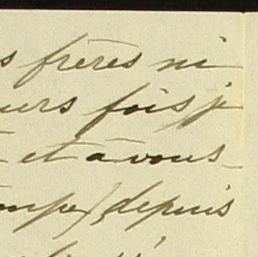 s frères ni
urs fois, j
et à vous
depuis